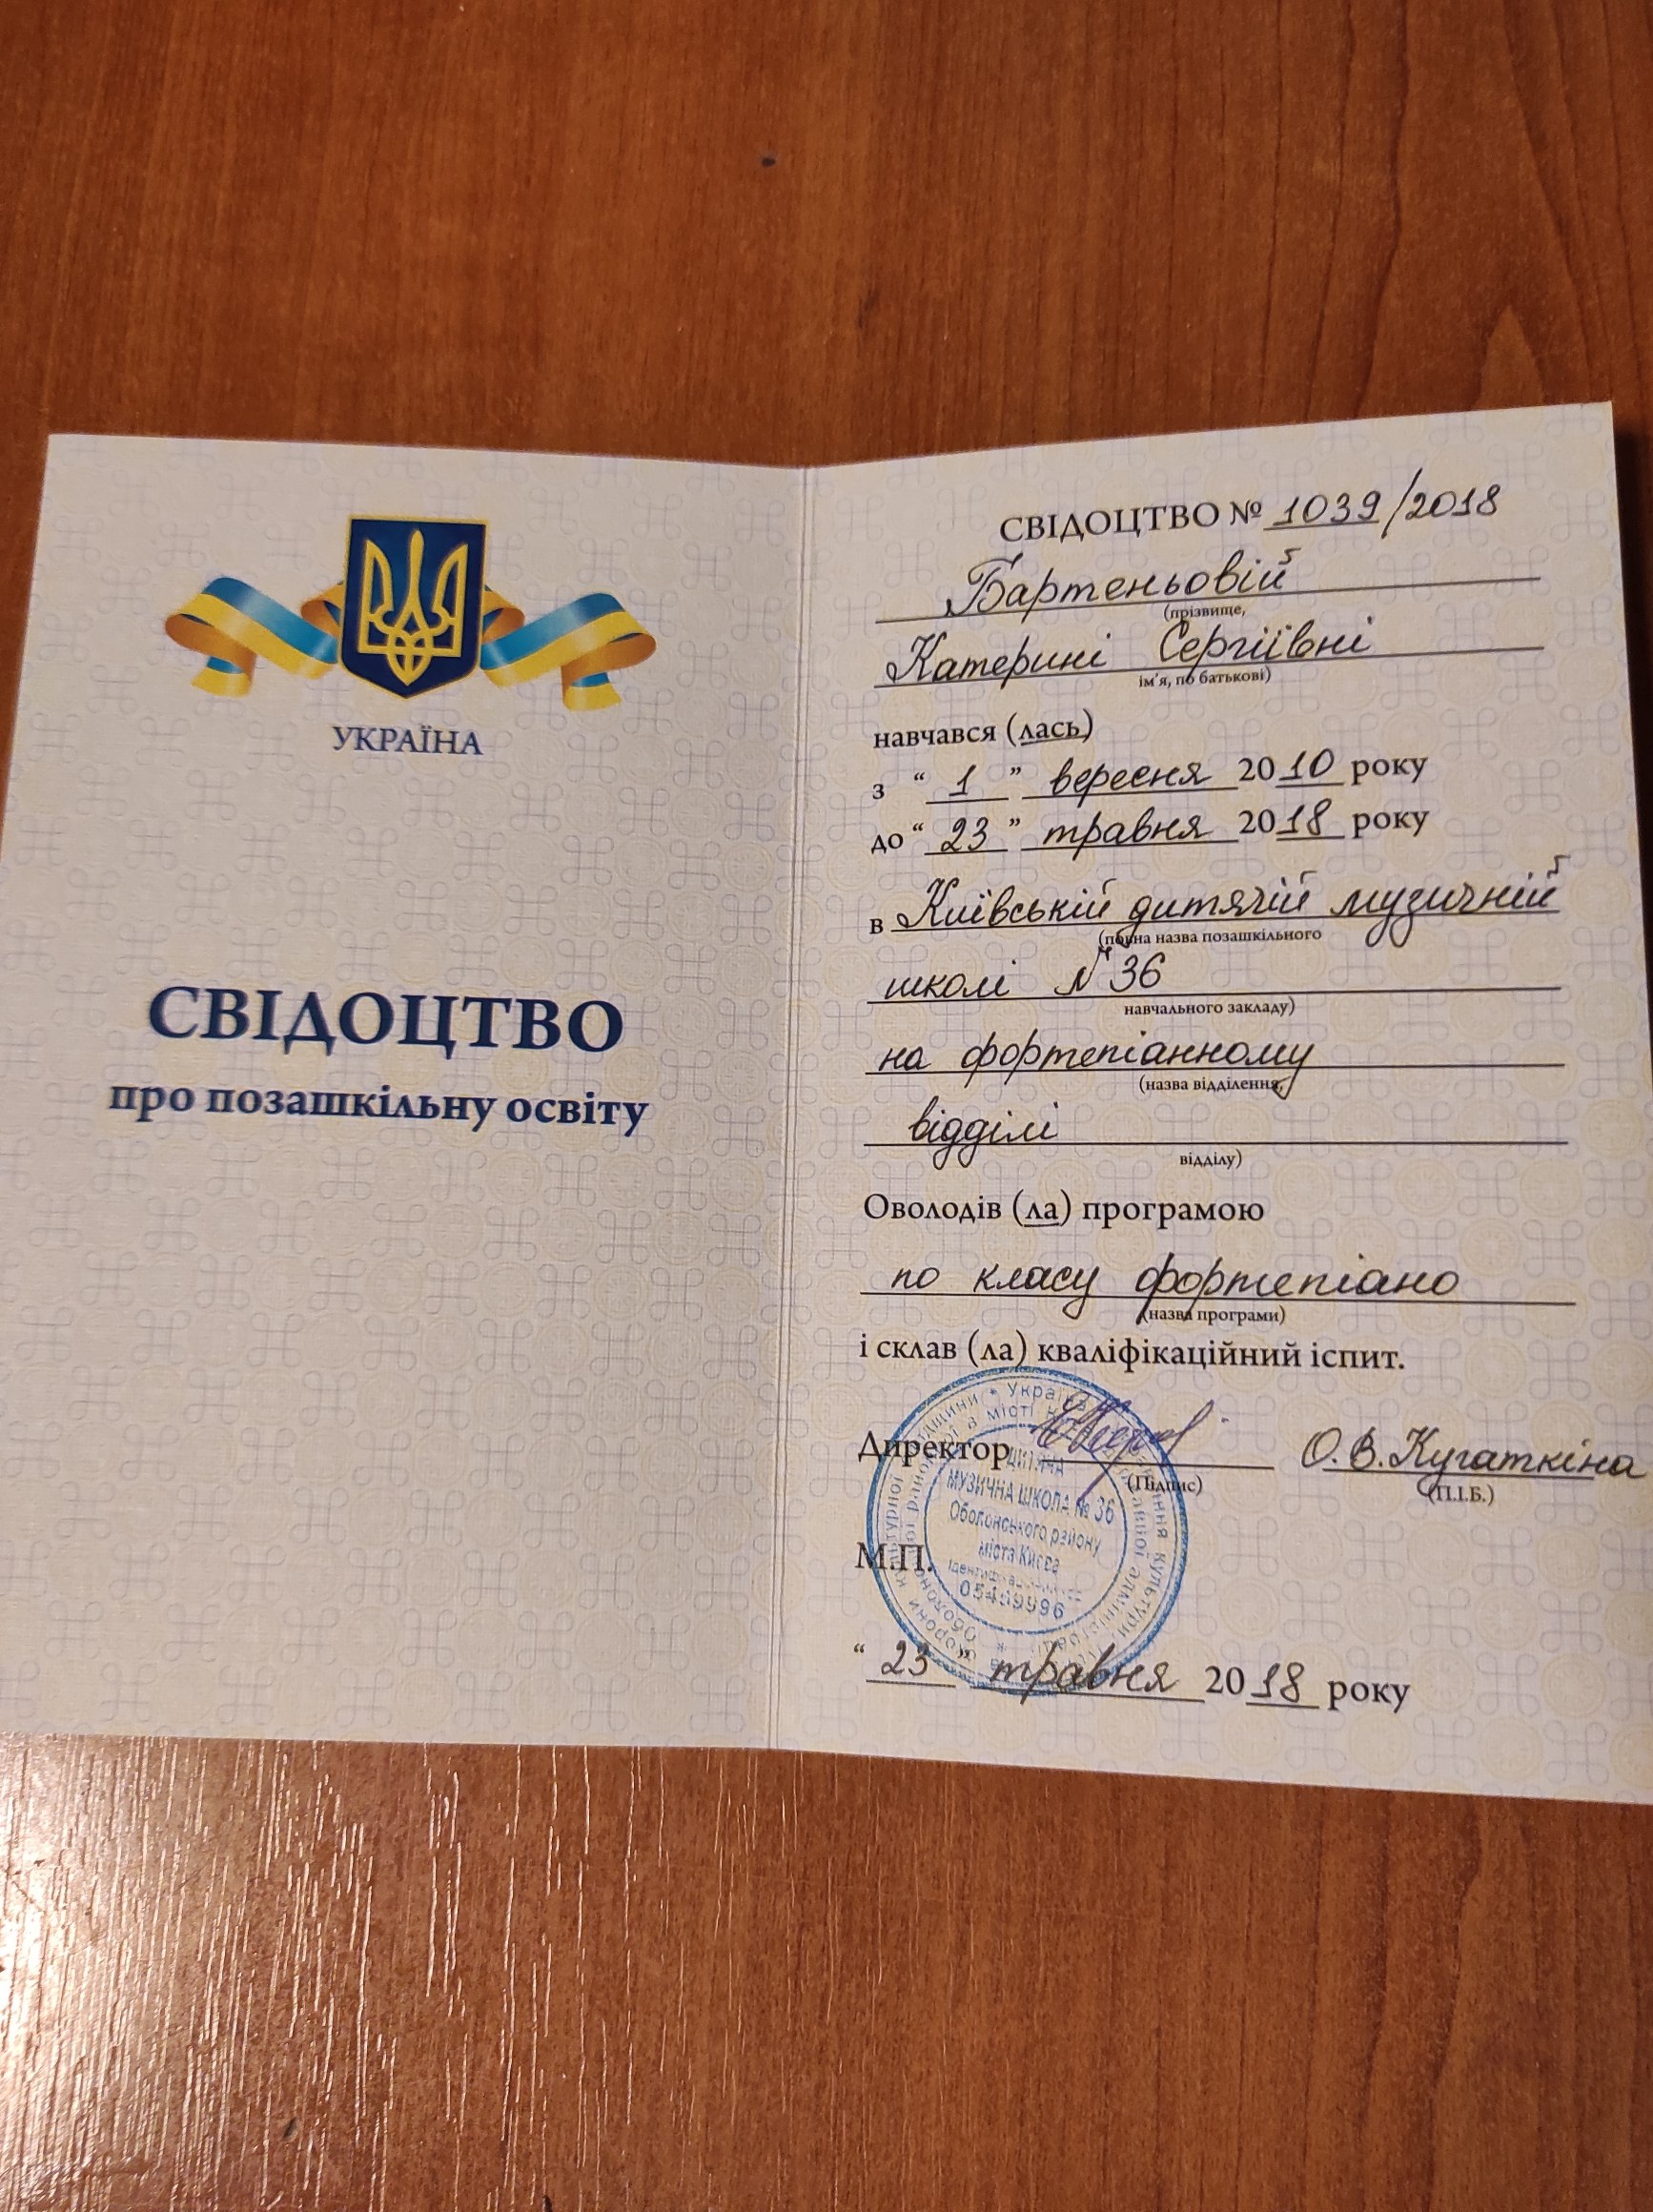 УКРАЇНА
СВІДОЦТВО
про позашкільну освіту
СВІДОЦТВО № 1039/2018
Бартеньовій
(прізвище,
Катерині Сергіївні
ім'я, по батькові)
навчався (лась)
з “ 1 ” вересня 2010 року
до “ 23 ” травня 2018 року
в Київській дитячій музичній
(повна назва позашкільного
школі № 36
навчального закладу)
на фортепіанному
(назва відділення,
відділі
відділу)
Оволодів (ла) програмою
по класу фортепіано
(назва програми)
і склав (ла) кваліфікаційний іспит.
Директор О.В. Кугаткіна
(Підпис) (П.І.Б.)
М.П.
ДИТЯЧА
МУЗИЧНА ШКОЛА № 36
Оболонського району
міста Києва
“ 23 ” травня 2018 року